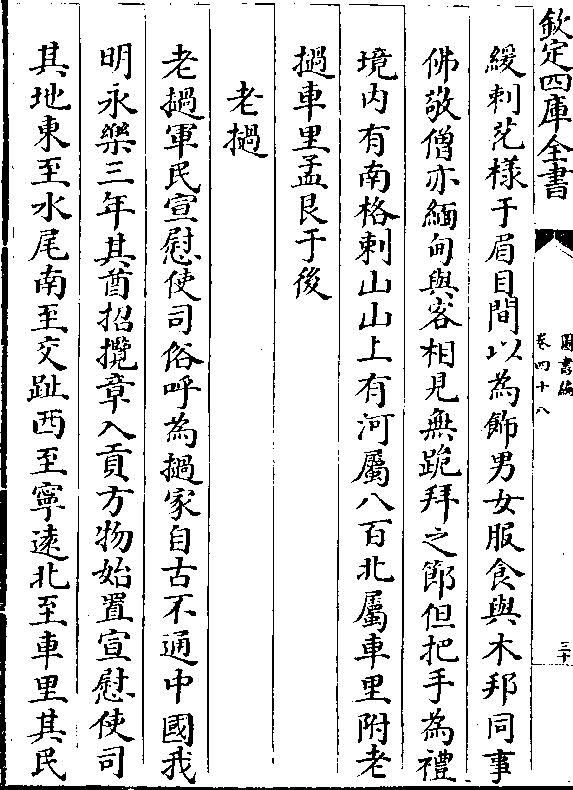 欽定四庫全書
圖書編
卷四十八
三十
緩刺花様于眉目間以為飾男女服食與木邦同事
佛敬僧亦緬甸與客相見無跪拜之節但把手為禮
境内有南格剌山山上有河屬八百北屬車里附老
撾車里孟艮于後
老撾
老撾軍民宣慰使司俗呼為撾家自古不通中國我
明永樂三年其酋招攬章入貢方物始置宣慰使司
其地東至水尾南至交趾西至寧逺北至車里其民